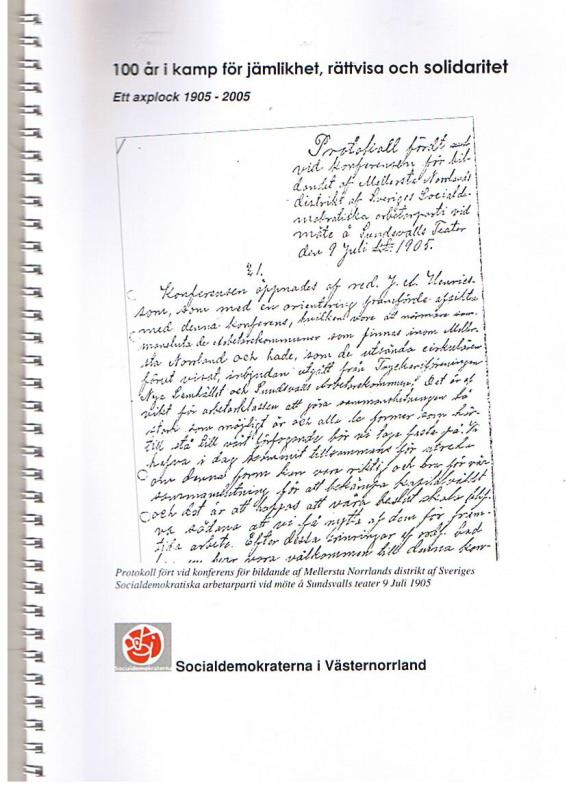 100 år i kamp för jämlikhet, rättvisa och solidaritet
Ett axplock 1905 - 2005
Protokoll fördt
vid konferensen för bil-
dandet af Mellersta Norrlands
distrikt af Sveriges Socialde-
mokratiska arbetarparti vid
möte å Sundsvalls Teater
den 9 Juli 1905.
§ 1.
Konferensen öppnades af red. J. A. Henrics-
som, som med en orientering framförde afsikten
med denna konferens, hvilken vore att närmare sam-
mansluta de Arbetarekommuner som finnas inom Meller-
sta Norrland och hade, som de utsända cirkulären
förut visat, inbjudan utgått från Tryckeriföreningen
Nya Samhället och Sundsvalls Arbetarekommun. Det är af
vikt för arbetarklassen att göra sammanslutningen så
stark som möjligt är och alla de former som här-
till stå till vårt förfogande bör vi taga fasta på. Vi
hafva i dag kommit tillsammans för att
om denna form kan vara riktig och bra för vår
sammanslutning för att bekämpa kapitalväldet
och det är att hoppas att våra beslut skola blif-
va sådana att vi få nytta af dem för fram-
tida arbete. Efter dessa erinringar
vara välkommen till denna kon-
Protokoll fört vid konferens för bildande af Mellersta Norrlands distrikt af Sveriges
Socialdemokratiska arbetarparti vid möte å Sundsvalls teater 9 Juli 1905
Socialdemokraterna
Socialdemokraterna i Västernorrland